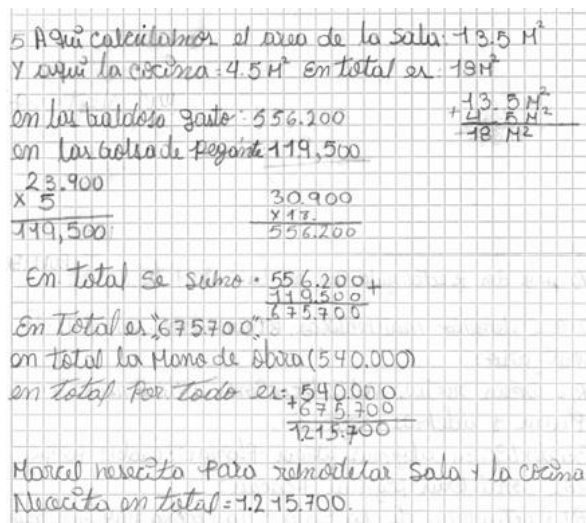 5 Aquí calculamos el area de la sala: 13.5 M²
Y aquí la cocina: 4.5 M² en total es: 18M²
13.5 M²
+ 4.5 M²
18 M²
en las baldosa gasto: 556.200
en las bolsa de pegante 119,500
23.900
x 5
119,500
30.900
x 18.
556.200
En total se sumo: 556.200 +
119.500
675.700
En Total es "675700"
en total la mano de obra (540.000)
en total Por todo es: 540.000
+675.700
1215.700
Marcel nesecita para remodelar Sala y la cocina
Nececita en total = 1.215.700.